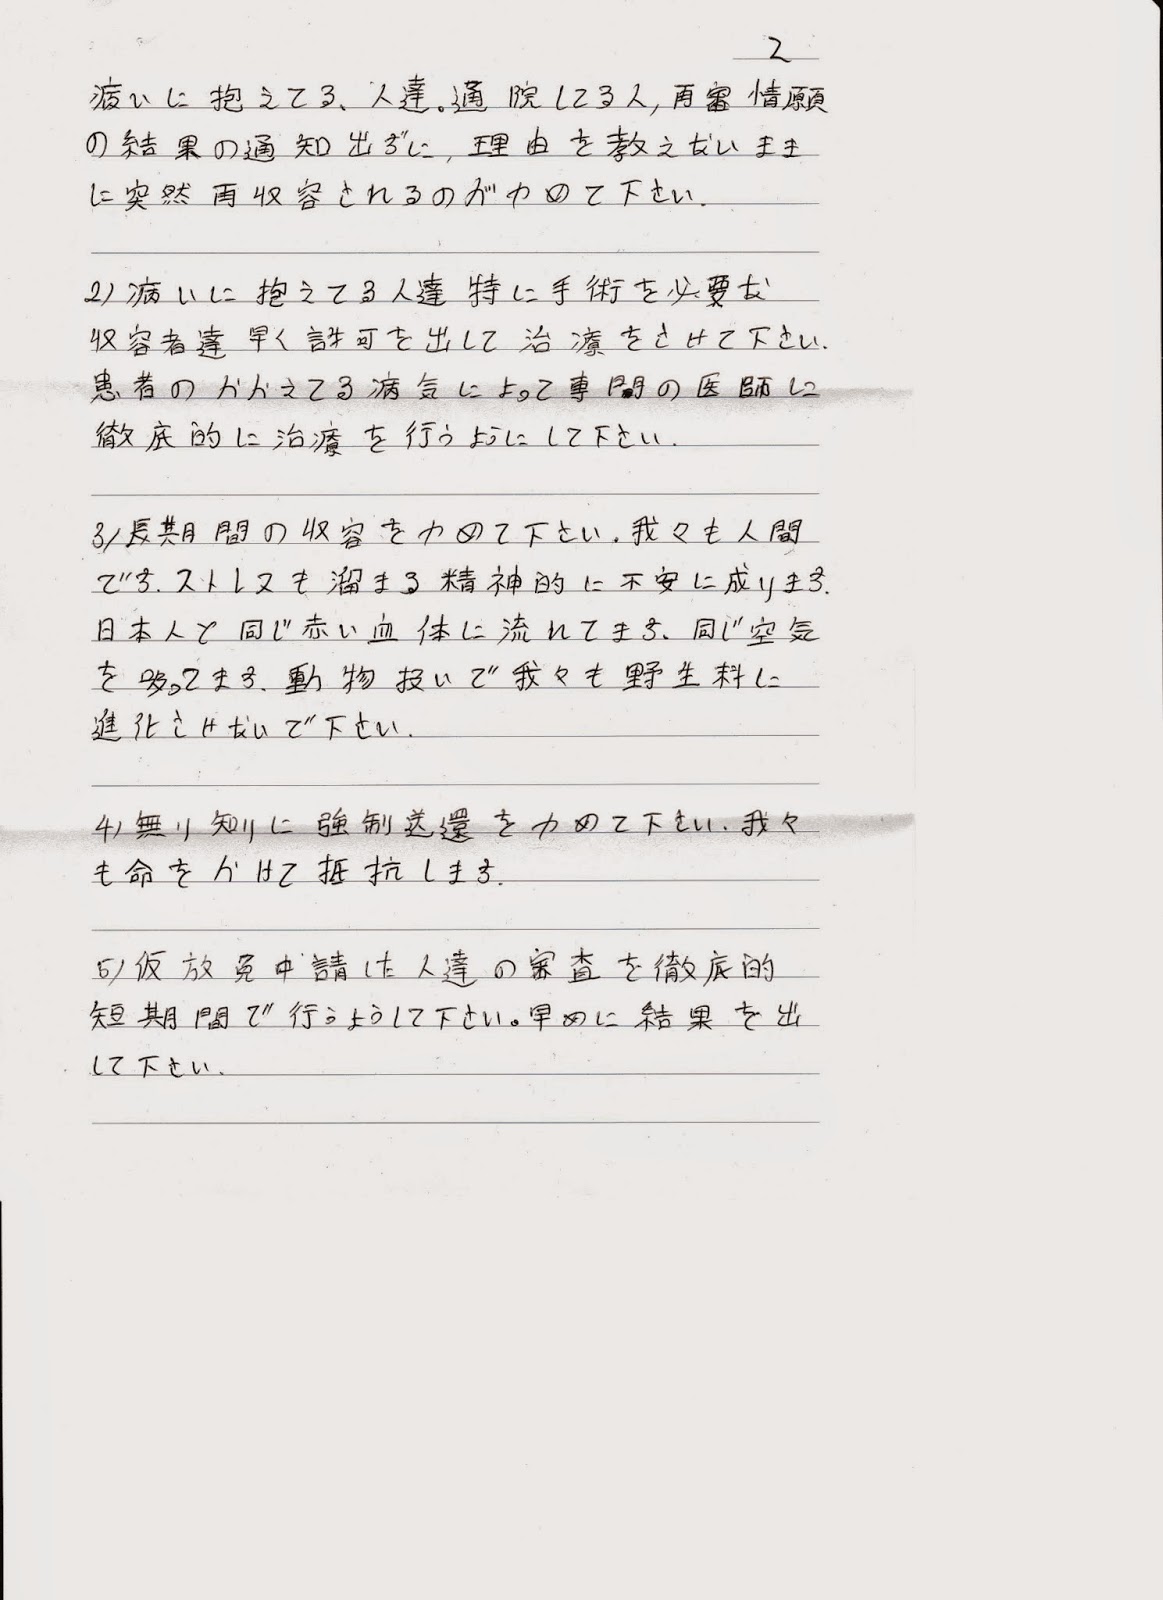 2
病いに抱えてる、人達。通院してる人,再審情願
の結果の通知出ずに,理由を教えないまま
に突然再収容されるのがカめて下さい.
2)病いに抱えてる人達特に手術を必要な
収容者達早く許可を出して治療をさせて下さい.
患者のかかえてる病気によって専間の医師に
徹底的に治療を行うようにして下さい.
3)長期間の収容をカめて下さい.我々も人間
です.ストレスも溜まる精神的に不安に成ります.
日本人と同じ赤い血体に流れてます、同じ空気
を吸ってます.動物扱いで我々も野生料に
進化させないで下さい.
4)無り知りに強制送還をカめて下さい.我々
も命をかけて抵抗します.
5)仮放免申請した人達の審査を徹底的
短期間で行うようして下さい。早めに結果を出
して下さい.